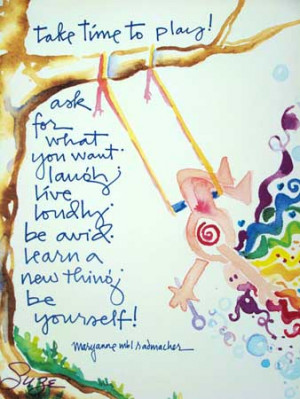 take time to play!
ask
for
what
you want.
laugh;
live
loudly.
be avid.
learn a
new thing;
be
yourself!
maryanne mbl radmacher
Suze